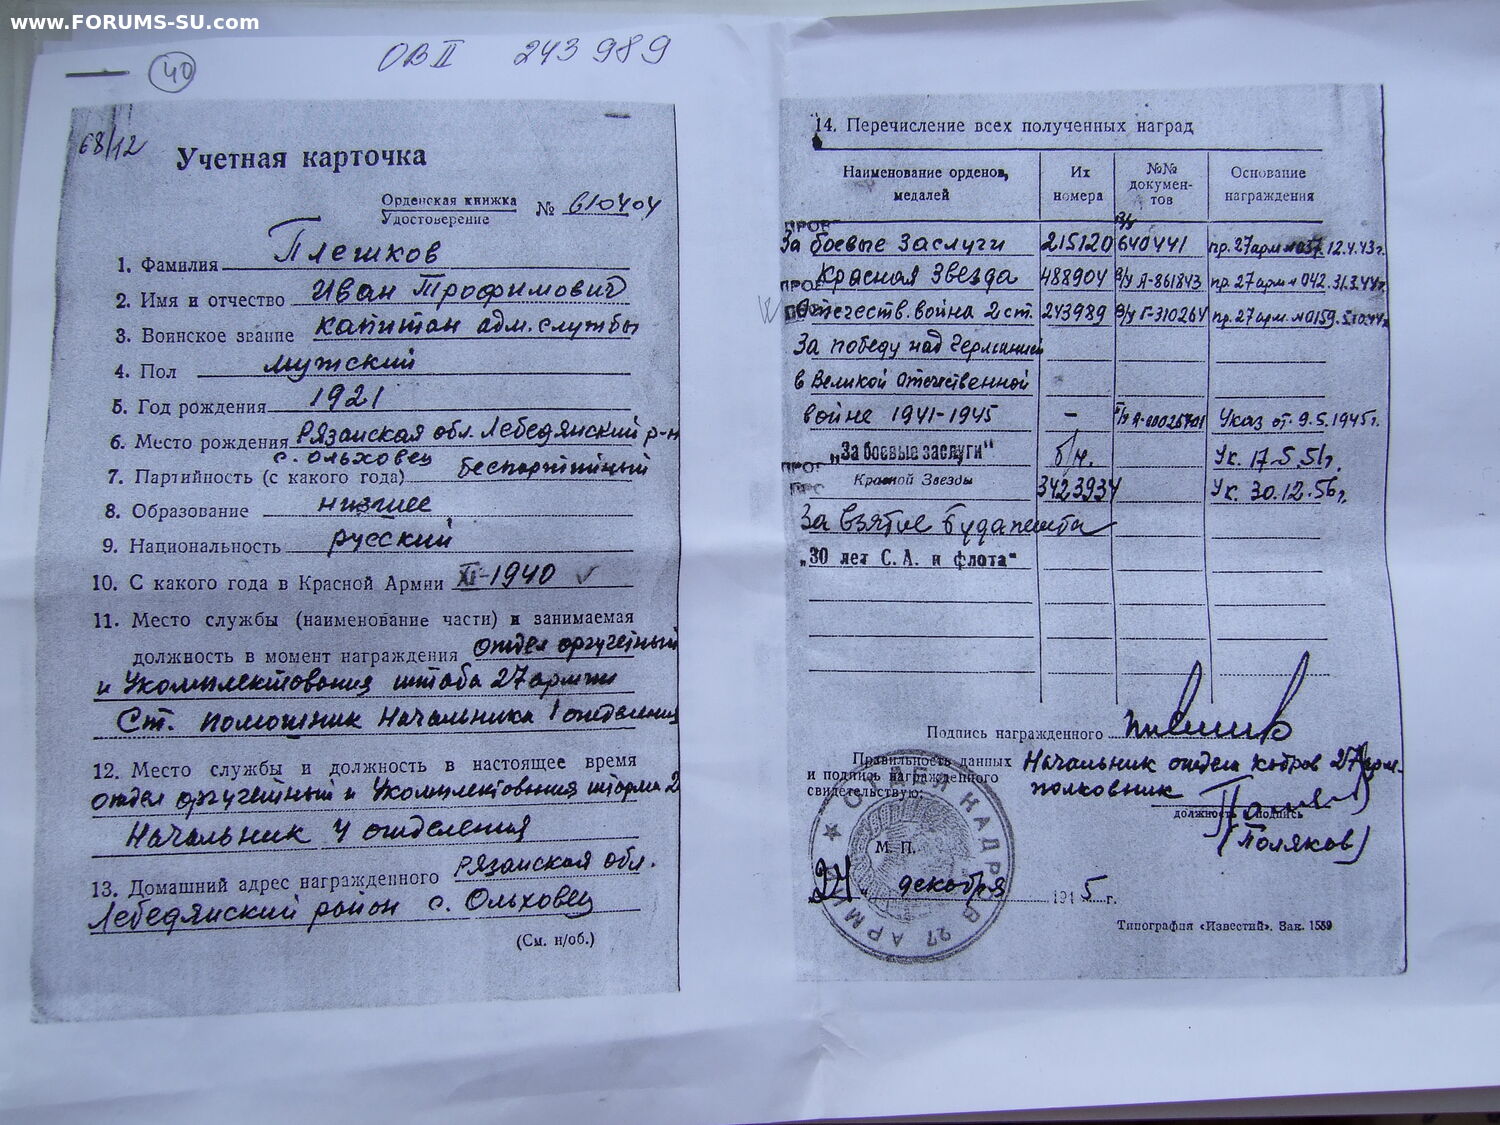 www.FORUMS-SU.com
40
ОВ II 243989
68/12
Учетная карточка
Орденская книжка
Удостоверение
№ 610404
1. Фамилия Плешков
2. Имя и отчество Иван Трофимович
3. Воинское звание капитан адм. службы
4. Пол мужской
5. Год рождения 1921
6. Место рождения Рязанская обл. Лебедянский р-н
с. Ольховец
7. Партийность (с какого года) беспартийный
8. Образование низшее
9. Национальность русский
10. С какого года в Красной Армии XI-1940
11. Место службы (наименование части) и занимаемая
должность в момент награждения отдел оргучетный
и Укомплектования штаба 27 армии
Ст. помошник Начальника 1 отделения
12. Место службы и должность в настоящее время
отдел оргучетный и Укомплектования
Начальник 4 отделения
13. Домашний адрес награжденного Рязанская обл.
Лебедянский район с. Ольховец
(См. н/об.)
14. Перечисление всех полученных наград
Наименование орденов, медалей
Их номера
№№ документов
Основание награждения
За боевые заслуги 215120 в/у 640441 пр. 27 арм 12.4.43г.
Красная Звезда 488904 в/у А-861843 пр. 27 арм № 042 31.3.44г.
Отечеств. война 2 ст. 243989 в/у Г-310264 пр. 27 арм. № 0159
За победу над Германией
в Великой Отечественной
войне 1941-1945 – Указ от 9.5.1945г.
„За боевые заслуги" б/н. Ук. 17.5.51г.
Красной Звезды 3423934 Ук. 30.12.56г.
За взятие Будапешта
„30 лет С. А. и флота"
Подпись награжденного
Правильность данных
и подпись награжденного
свидетельствую:
Начальник отдел кадров 27 арм.
полковник
должность и подпись
(Поляков)
М. П.
27 декабря 1945 г.
Типография «Известий». Зак. 1589